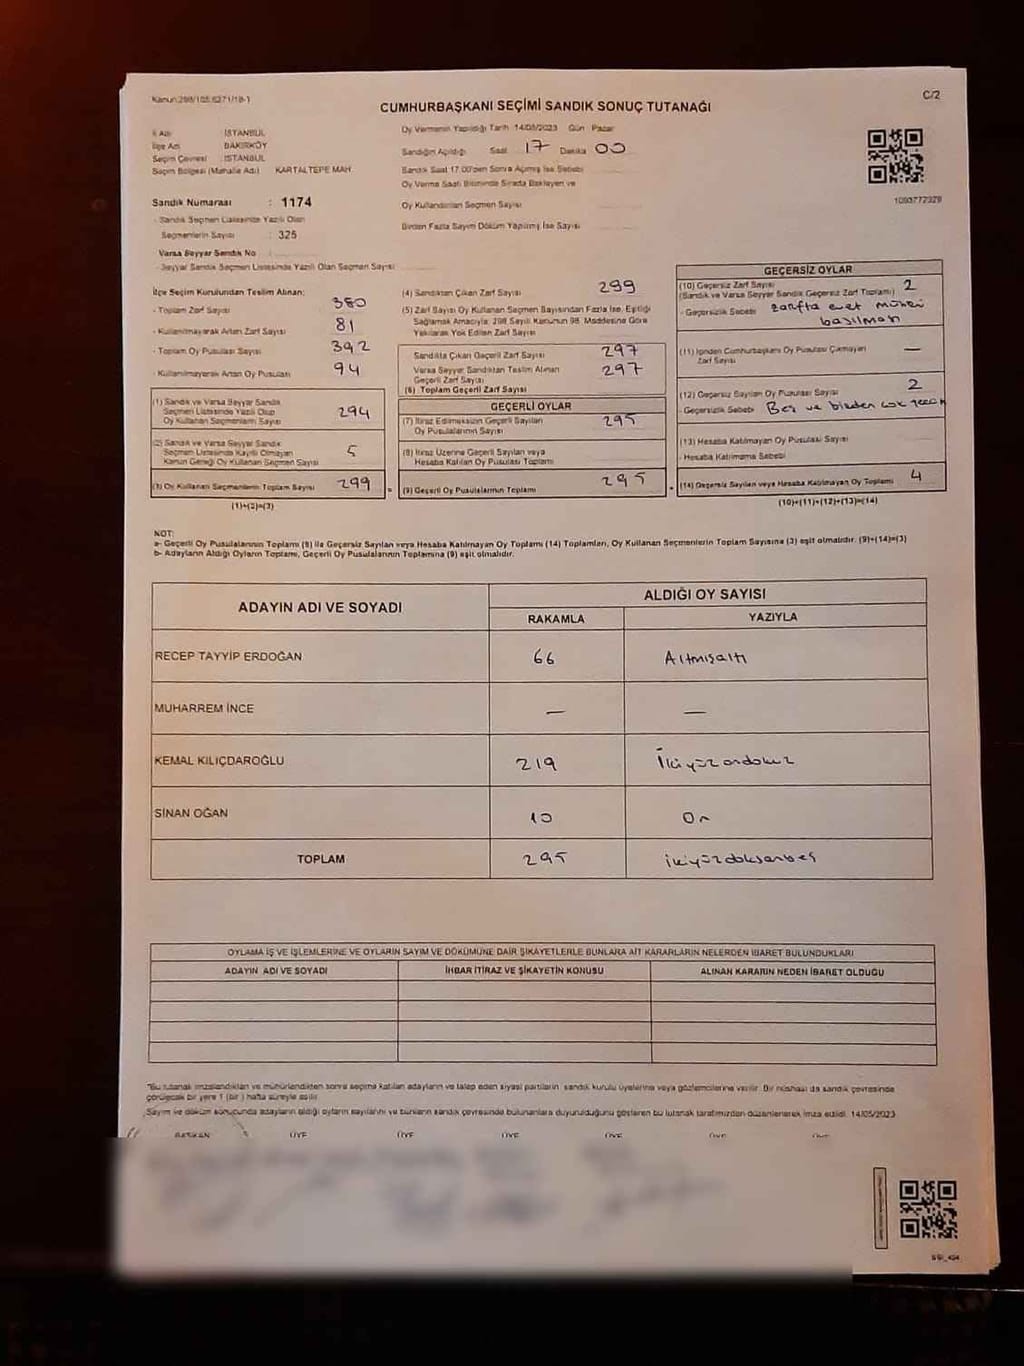 Kanun:298/105.6271/18-1
C/2
CUMHURBAŞKANI SEÇİMİ SANDIK SONUÇ TUTANAĞI
İl Adı İSTANBUL
İlçe Adı BAKIRKÖY
Seçim Çevresi : İSTANBUL
Seçim Bölgesi (Mahalle Adı) KARTALTEPE MAH.
Oy Vermenin Yapıldığı Tarih 14/05/2023 Gün Pazar
Sandığın Açıldığı Saat 17 Dakika 00
Sandık Saat 17.00'den Sonra Açılmış İse Sebebi
Oy Verme Saati Bitiminde Sırada Bekleyen ve
Oy Kullandırılan Seçmen Sayısı
Birden Fazla Sayım Döküm Yapılmış İse Sayısı
1093772929
Sandık Numarası : 1174
- Sandık Seçmen Listesinde Yazılı Olan
Seçmenlerin Sayısı : 325
Varsa Seyyar Sandık No :
- Seyyar Sandık Seçmen Listesinde Yazılı Olan Seçmen Sayısı
İlçe Seçim Kurulundan Teslim Alınan:
- Toplam Zarf Sayısı 380
- Kullanılmayarak Artan Zarf Sayısı 81
- Toplam Oy Pusulası Sayısı 392
- Kullanılmayarak Artan Oy Pusulası 94
(1) Sandık ve Varsa Seyyar Sandık
Seçmen Listesinde Yazılı Olup
Oy Kullanan Seçmenlerin Sayısı 294
(2) Sandık ve Varsa Seyyar Sandık
Seçmen Listesinde Kayıtlı Olmayan
Kanun Gereği Oy Kullanan Seçmen Sayısı 5
(3) Oy Kullanan Seçmenlerin Toplam Sayısı 299
(1)+(2)=(3)
(4) Sandıktan Çıkan Zarf Sayısı 299
(5) Zarf Sayısı Oy Kullanan Seçmen Sayısından Fazla İse, Eşitliği
Sağlamak Amacıyla; 298 Sayılı Kanunun 98. Maddesine Göre
Yakılarak Yok Edilen Zarf Sayısı
Sandıkta Çıkan Geçerli Zarf Sayısı 297
Varsa Seyyar Sandıktan Teslim Alınan
Geçerli Zarf Sayısı 297
(6) Toplam Geçerli Zarf Sayısı
GEÇERLİ OYLAR
(7) İtiraz Edilmeksizin Geçerli Sayılan
Oy Pusulalarının Sayısı 295
(8) İtiraz Üzerine Geçerli Sayılan veya
Hesaba Katılan Oy Pusulası Toplamı
(9) Geçerli Oy Pusulalarının Toplamı 295
GEÇERSİZ OYLAR
(10) Geçersiz Zarf Sayısı 2
(Sandık ve Varsa Seyyar Sandık Geçersiz Zarf Toplamı)
- Geçersizlik Sebebi zarfta evet mührü
basılması
(11) İçinden Cumhurbaşkanı Oy Pusulası Çıkmayan
Zarf Sayısı —
(12) Geçersiz Sayılan Oy Pusulası Sayısı 2
- Geçersizlik Sebebi Boş ve birden çok
(13) Hesaba Katılmayan Oy Pusulası Sayısı
- Hesaba Katılmama Sebebi
(14) Geçersiz Sayılan veya Hesaba Katılmayan Oy Toplamı 4
(10)+(11)+(12)+(13)=(14)
NOT:
a- Geçerli Oy Pusulalarının Toplamı (9) ile Geçersiz Sayılan veya Hesaba Katılmayan Oy Toplamı (14) Toplamları, Oy Kullanan Seçmenlerin Toplam Sayısına (3) eşit olmalıdır. (9)+(14)=(3)
b- Adayların Aldığı Oyların Toplamı, Geçerli Oy Pusulalarının Toplamına (9) eşit olmalıdır.
ADAYIN ADI VE SOYADI
ALDIĞI OY SAYISI
RAKAMLA YAZIYLA
RECEP TAYYİP ERDOĞAN 66 Altmışaltı
MUHARREM İNCE — —
KEMAL KILIÇDAROĞLU 219 İkiyüzondokuz
SİNAN OĞAN 10 On
TOPLAM 295 ikiyüzdoksanbeş
OYLAMA İŞ VE İŞLEMLERİNE VE OYLARIN SAYIM VE DÖKÜMÜNE DAİR ŞİKAYETLERLE BUNLARA AİT KARARLARIN NELERDEN İBARET BULUNDUKLARI
ADAYIN ADI VE SOYADI İHBAR İTİRAZ VE ŞİKAYETİN KONUSU ALINAN KARARIN NEDEN İBARET OLDUĞU
*Bu tutanak imzalandıktan ve mühürlendikten sonra seçime katılan adayların ve talep eden siyasi partilerin sandık kurulu üyelerine veya gözlemcilerine verilir. Bir nüshası da sandık çevresinde
görülecek bir yere 1 (bir) hafta süreyle asılır.
Sayım ve döküm sonucunda adayların aldığı oyların sayılarını ve bunların sandık çevresinde bulunanlara duyurulduğunu gösteren bu tutanak tarafımızdan düzenlenerek imza edildi. 14/05/2023
BAŞKAN ÜYE ÜYE ÜYE ÜYE ÜYE ÜYE